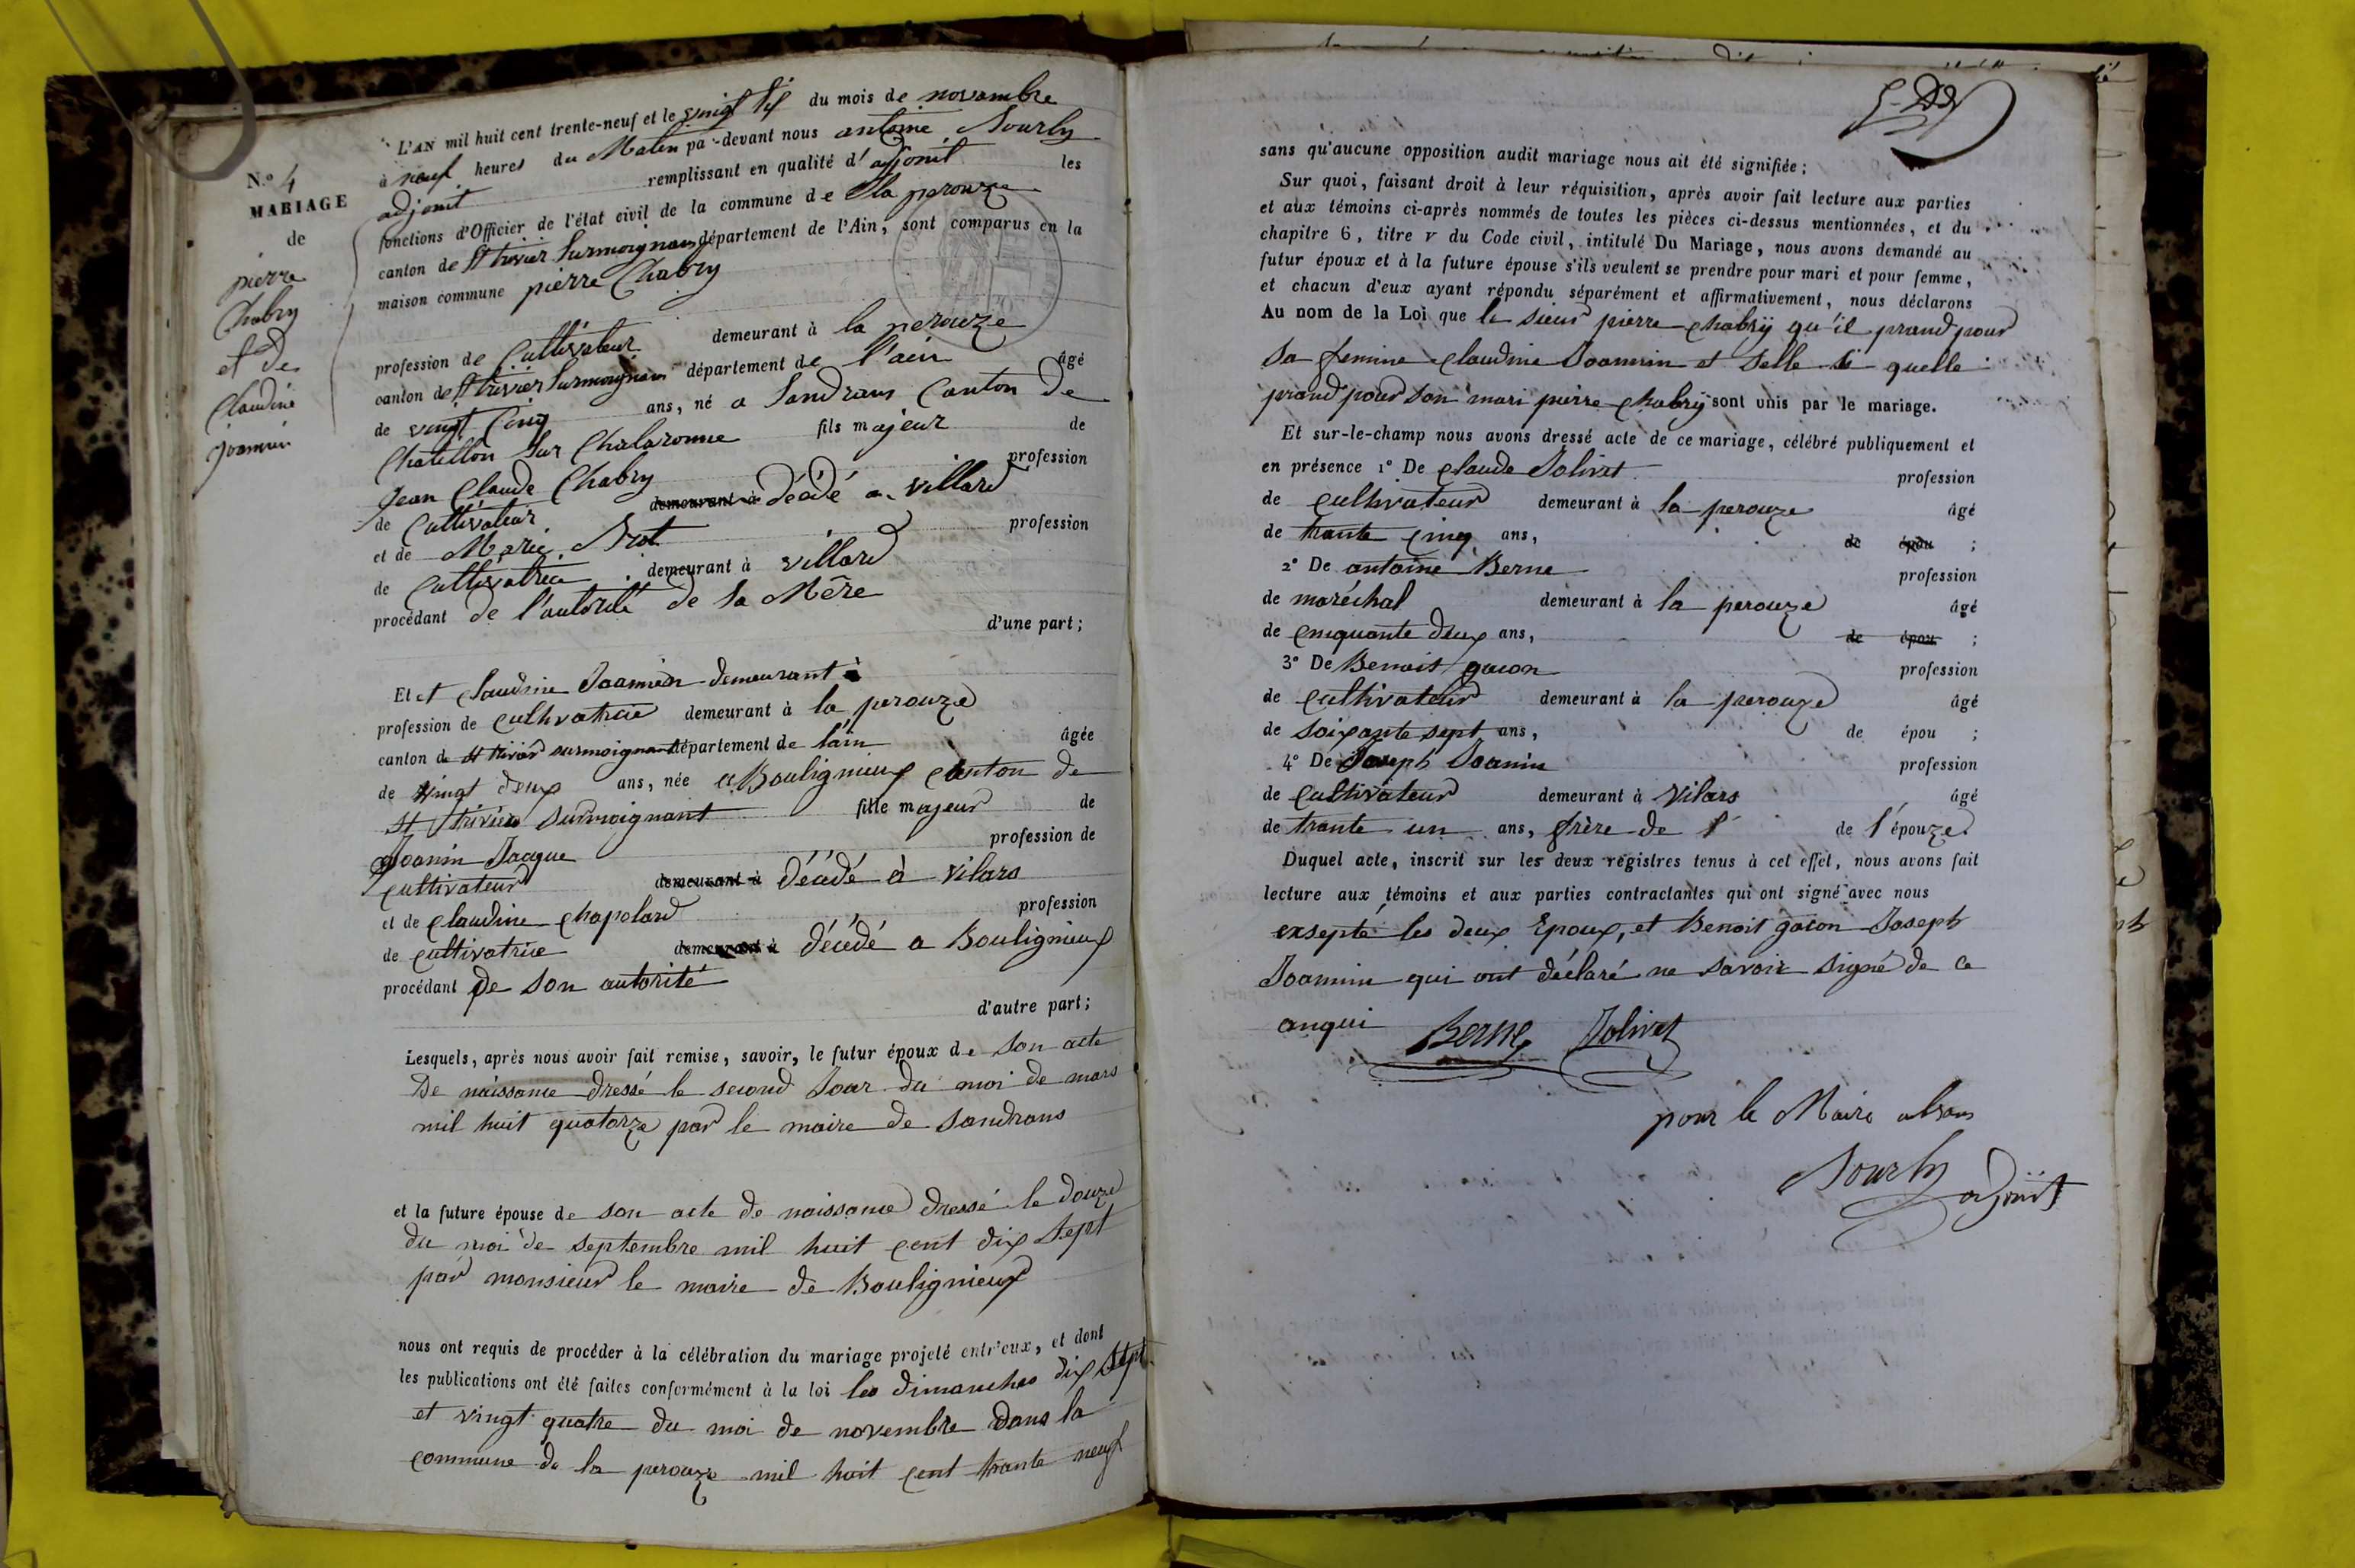 L'AN mil huit cent trente-neuf et le vingt six du mois de novambre
à neuf heures du Matin pa -devant nous antoine Sourly
adjonit remplissant en qualité d'adjonit les
N.o 4
MARIAGE
de
pierre
Chabry
et de
Claudine
joannin
fonctions d'Officier de l'état civil de la commune de la perouze
canton de St trivier Surmoignans département de l'Ain, sont comparus en la
maison commune pierre Chabry
profession de Cultivateur demeurant à la perouze
canton de St trivier Surmoignans département de l'ain âgé
de vingt Cinq ans, né a Sandrans Canton de
Chatillon Sur Chalaronne fils majeur de
Jean Claude Chabry profession
de Cultivateur demeurant à décédé a villard
et de Marie Brot profession
de Cultivatrice demeurant à villard
procédant de l'autorité de Sa Mère
d'une part ;
Et et Claudine Joannin demeurant à
profession de cultivatrice demeurant à la perouze
canton de st trivier surmoignant département de l'ain âgée
de vingt deux ans, née a Boulignieux canton de
st trivier surmoignant fille majeur de
Joanin Jacque profession de
cultivateur demeurant à décédé à vilars
et de claudine chapolard profession
de cultivatrice demeurant à décédé a Boulignieux
procédant de son autorité
d'autre part ;
Lesquels, après nous avoir fait remise, savoir, le futur époux de son acte
De naissance dressé le second Jour du moi de mars
mil huit quatorze par le maire de sandrans
et la future épouse de son acte de naissance dressé le douze
du moi de septembre mil huit cent dix sept
par monsieur le maire de Boulignieux
nous ont requis de procéder à la célébration du mariage projeté entr'eux, et dont
les publications ont été faites conformément à la loi les dimanches dix sept
et vingt quatre du moi de novembre dans la
commune de la perouze mil huit cent trante neuf
sans qu'aucune opposition audit mariage nous ait été signifiée ;
Sur quoi, faisant droit à leur réquisition, après avoir fait lecture aux parties
et aux témoins ci-après nommés de toutes les pièces ci-dessus mentionnées, et du
chapitre 6, titre v du Code civil, intitulé Du Mariage, nous avons demandé au
futur époux et à la future épouse s'ils veulent se prendre pour mari et pour femme,
et chacun d'eux ayant répondu séparément et affirmativement, nous déclarons
Au nom de la Loi que le sieur pierre chabrÿ qu'il prand pour
sa femme claudine Joannin et selle si quelle
prand pour son mari pierre chabrÿ sont unis par le mariage.
Et sur-le-champ nous avons dressé acte de ce mariage, célébré publiquement et
en présence 1° De claude Jolivet profession
de cultivateur demeurant à la perouze âgé
de trante cinq ans, de épou ;
2° De antoine Berne profession
de maréchal demeurant à la perouze âgé
de cinquante deux ans, de épou ;
3° De Benoit gacon profession
de cultivateur demeurant à la perouze âgé
de soixante sept ans, de épou ;
4° De Joseph Joanin profession
de cultivateur demeurant à vilars âgé
de trante un ans, frère de l' de l'épouze
Duquel acte, inscrit sur les deux registres tenus à cet effet, nous avons fait
lecture aux témoins et aux parties contractantes qui ont signé avec nous
exsepté les deux Epoux, et Benoit gacon Joseph
Joannin qui ont déclaré ne savoir signé de ce
anqui Berne Jolivet
pour le Maire absans
Sourly adjonit